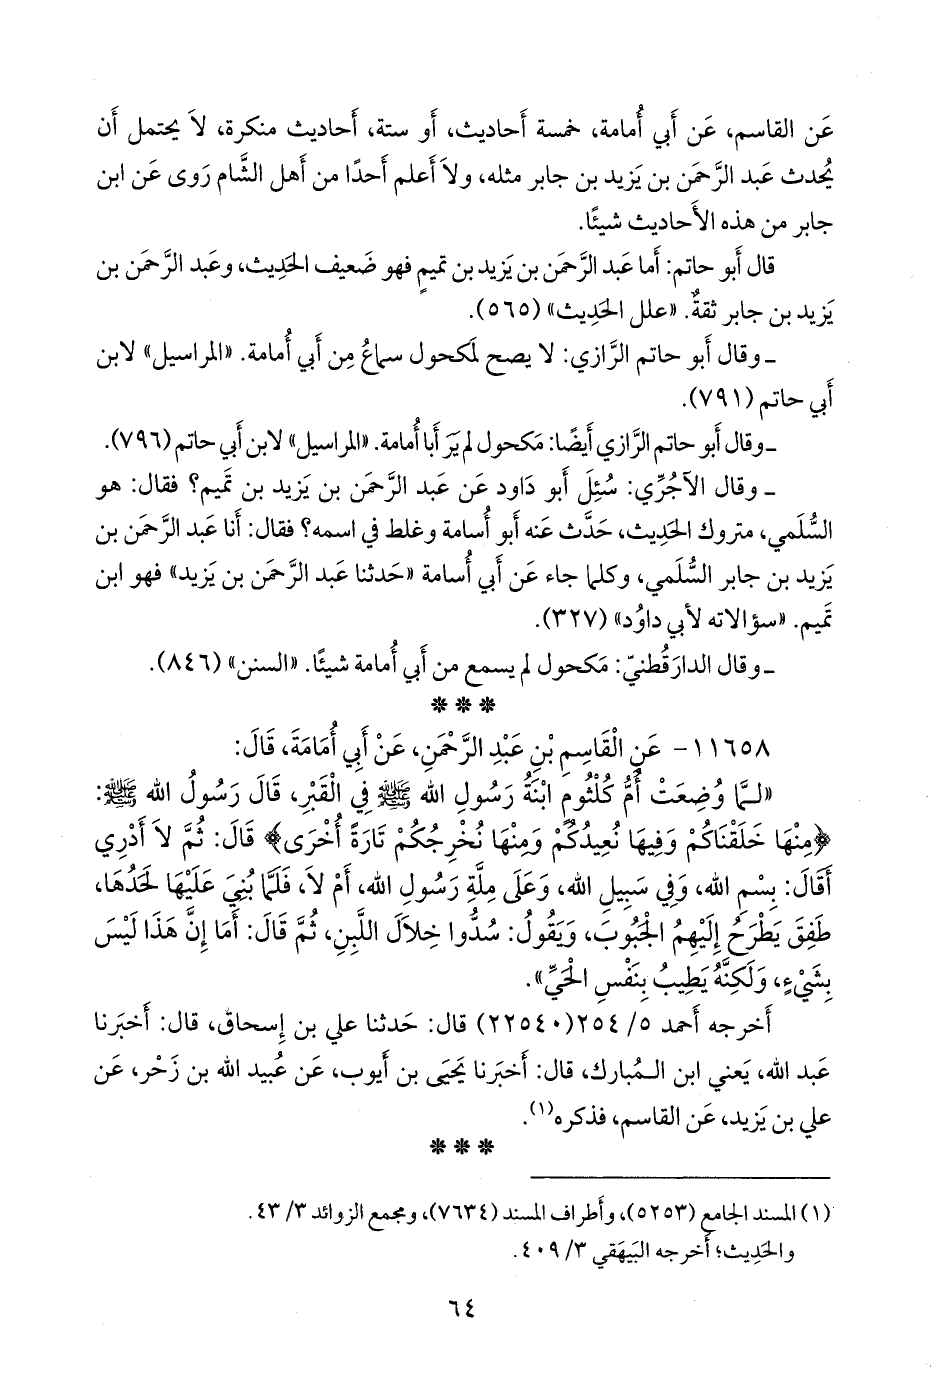 عَن القاسم، عَن أَبي أُمامة، خمسة أَحاديث، أَو ستة، أَحاديث منكرة، لاَ يحتمل أَن
يُحدث عَبد الرَّحمَن بن يَزيد بن جابر مثله، ولاَ أَعلم أَحدًا من أَهل الشَّام رَوى عَن ابن
جابر من هذه الأَحاديث شيئًا.
قال أَبو حاتم: أَما عَبد الرَّحمَن بن يَزيد بن تميمٍ فهو ضَعيف الحَدِيث، وعَبد الرَّحمَن بن
يَزيد بن جابر ثقةٌ. «علل الحَدِيث» (٥٦٥).
ـ وقال أَبو حاتم الرَّازي: لا يصح لمَكحول سماعُ مِن أَبي أُمامة. «المراسيل» لابن
أَبي حاتم (٧٩١).
ـ وقال أَبو حاتم الرَّازي أَيضًا: مَكحول لم يَرَ أَبا أُمامة. «المراسيل» لابن أَبي حاتم (٧٩٦).
ـ وقال الآجُرِّي: سُئِلَ أَبو دَاود عَن عَبد الرَّحمَن بن يَزيد بن تَميم؟ فقال: هو
السُّلَمي، متروك الحَدِيث، حَدَّث عَنه أَبو أُسامة وغلط في اسمه؟ فقال: أَنا عَبد الرَّحمَن بن
يَزيد بن جابر السُّلَمي، وكلما جاء عَن أَبي أُسامة «حَدثنا عَبد الرَّحمَن بن يَزيد» فهو ابن
تَميم. «سؤالاته لأَبي داوُد» (٣٢٧).
ـ وقال الدارَقُطنيّ: مَكحول لم يسمع من أَبي أُمامة شيئًا. «السنن» (٨٤٦).
* * *
١١٦٥٨- عَنِ الْقَاسِمِ بْنِ عَبْدِ الرَّحْمَنِ، عَنْ أَبِي أُمَامَةَ، قَالَ:
«لَـمَّا وُضِعَتْ أُمُّ كُلْثُومِ ابْنَةُ رَسُولِ الله ﷺ فِي الْقَبْرِ، قَالَ رَسُولُ الله ﷺ:
﴿مِنْهَا خَلَقْنَاكُمْ وَفِيهَا نُعِيدُكُمْ وَمِنْهَا نُخْرِجُكُمْ تَارَةً أُخْرَى﴾ قَالَ: ثُمَّ لاَ أَدْرِي
أَقَالَ: بِسْمِ الله، وَفِي سَبِيلِ الله، وَعَلَى مِلَّةِ رَسُولِ الله، أَمْ لاَ، فَلَمَّا بُنِيَ عَلَيْهَا لَحْدُهَا،
طَفِقَ يَطْرَحُ إِلَيْهِمُ الْجَبُوبَ، وَيَقُولُ: سُدُّوا خِلاَلَ اللَّبِنِ، ثُمَّ قَالَ: أَمَا إِنَّ هَذَا لَيْسَ
بِشَيْءٍ، وَلَكِنَّهُ يَطِيبُ بِنَفْسِ الْحَيِّ».
أَخرجه أَحمد ٥/ ٢٥٤(٢٢٥٤٠) قال: حَدثنا علي بن إِسحاق، قال: أَخبَرنا
عَبد الله، يَعني ابن الـمُبارك، قال: أَخبَرنا يَحيَى بن أَيوب، عَن عُبيد الله بن زَحْر، عَن
علي بن يَزيد، عَن القاسم، فذكره(١).
* * *
(١) المسند الجامع (٥٢٥٣)، وأَطراف المسند (٧٦٣٤)، ومجمع الزوائد ٣/ ٤٣.
والحَدِيث؛ أَخرجه البَيهَقي ٣/ ٤٠٩.
٦٤